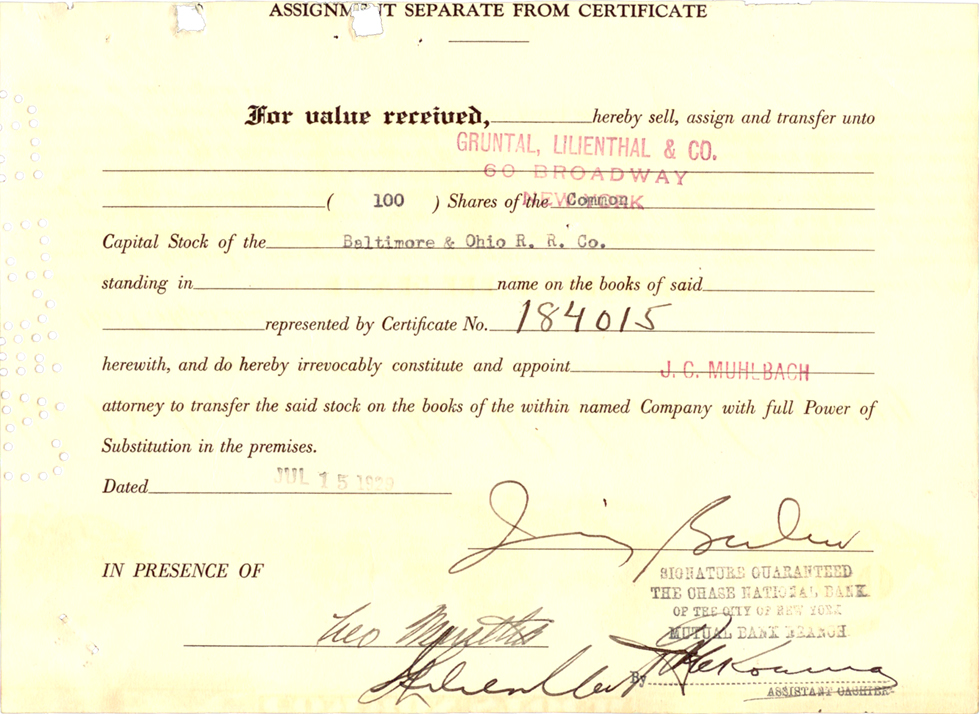 ASSIGNMENT SEPARATE FROM CERTIFICATE
For value received, hereby sell, assign and transfer unto
GRUNTAL, LILIENTHAL & CO.
60 BROADWAY
NEW YORK
( 100 ) Shares of the Common
Capital Stock of the Baltimore & Ohio R. R. Co.
standing in name on the books of said
represented by Certificate No. 184015
herewith, and do hereby irrevocably constitute and appoint J. C. MUHLBACH
attorney to transfer the said stock on the books of the within named Company with full Power of
Substitution in the premises.
Dated JUL 15
IN PRESENCE OF
SIGNATURE GUARANTEED
THE CHASE NATIONAL BANK
OF THE CITY OF NEW YORK
MUTUAL BANK BRANCH
Leo
By
ASSISTANT CASHIER